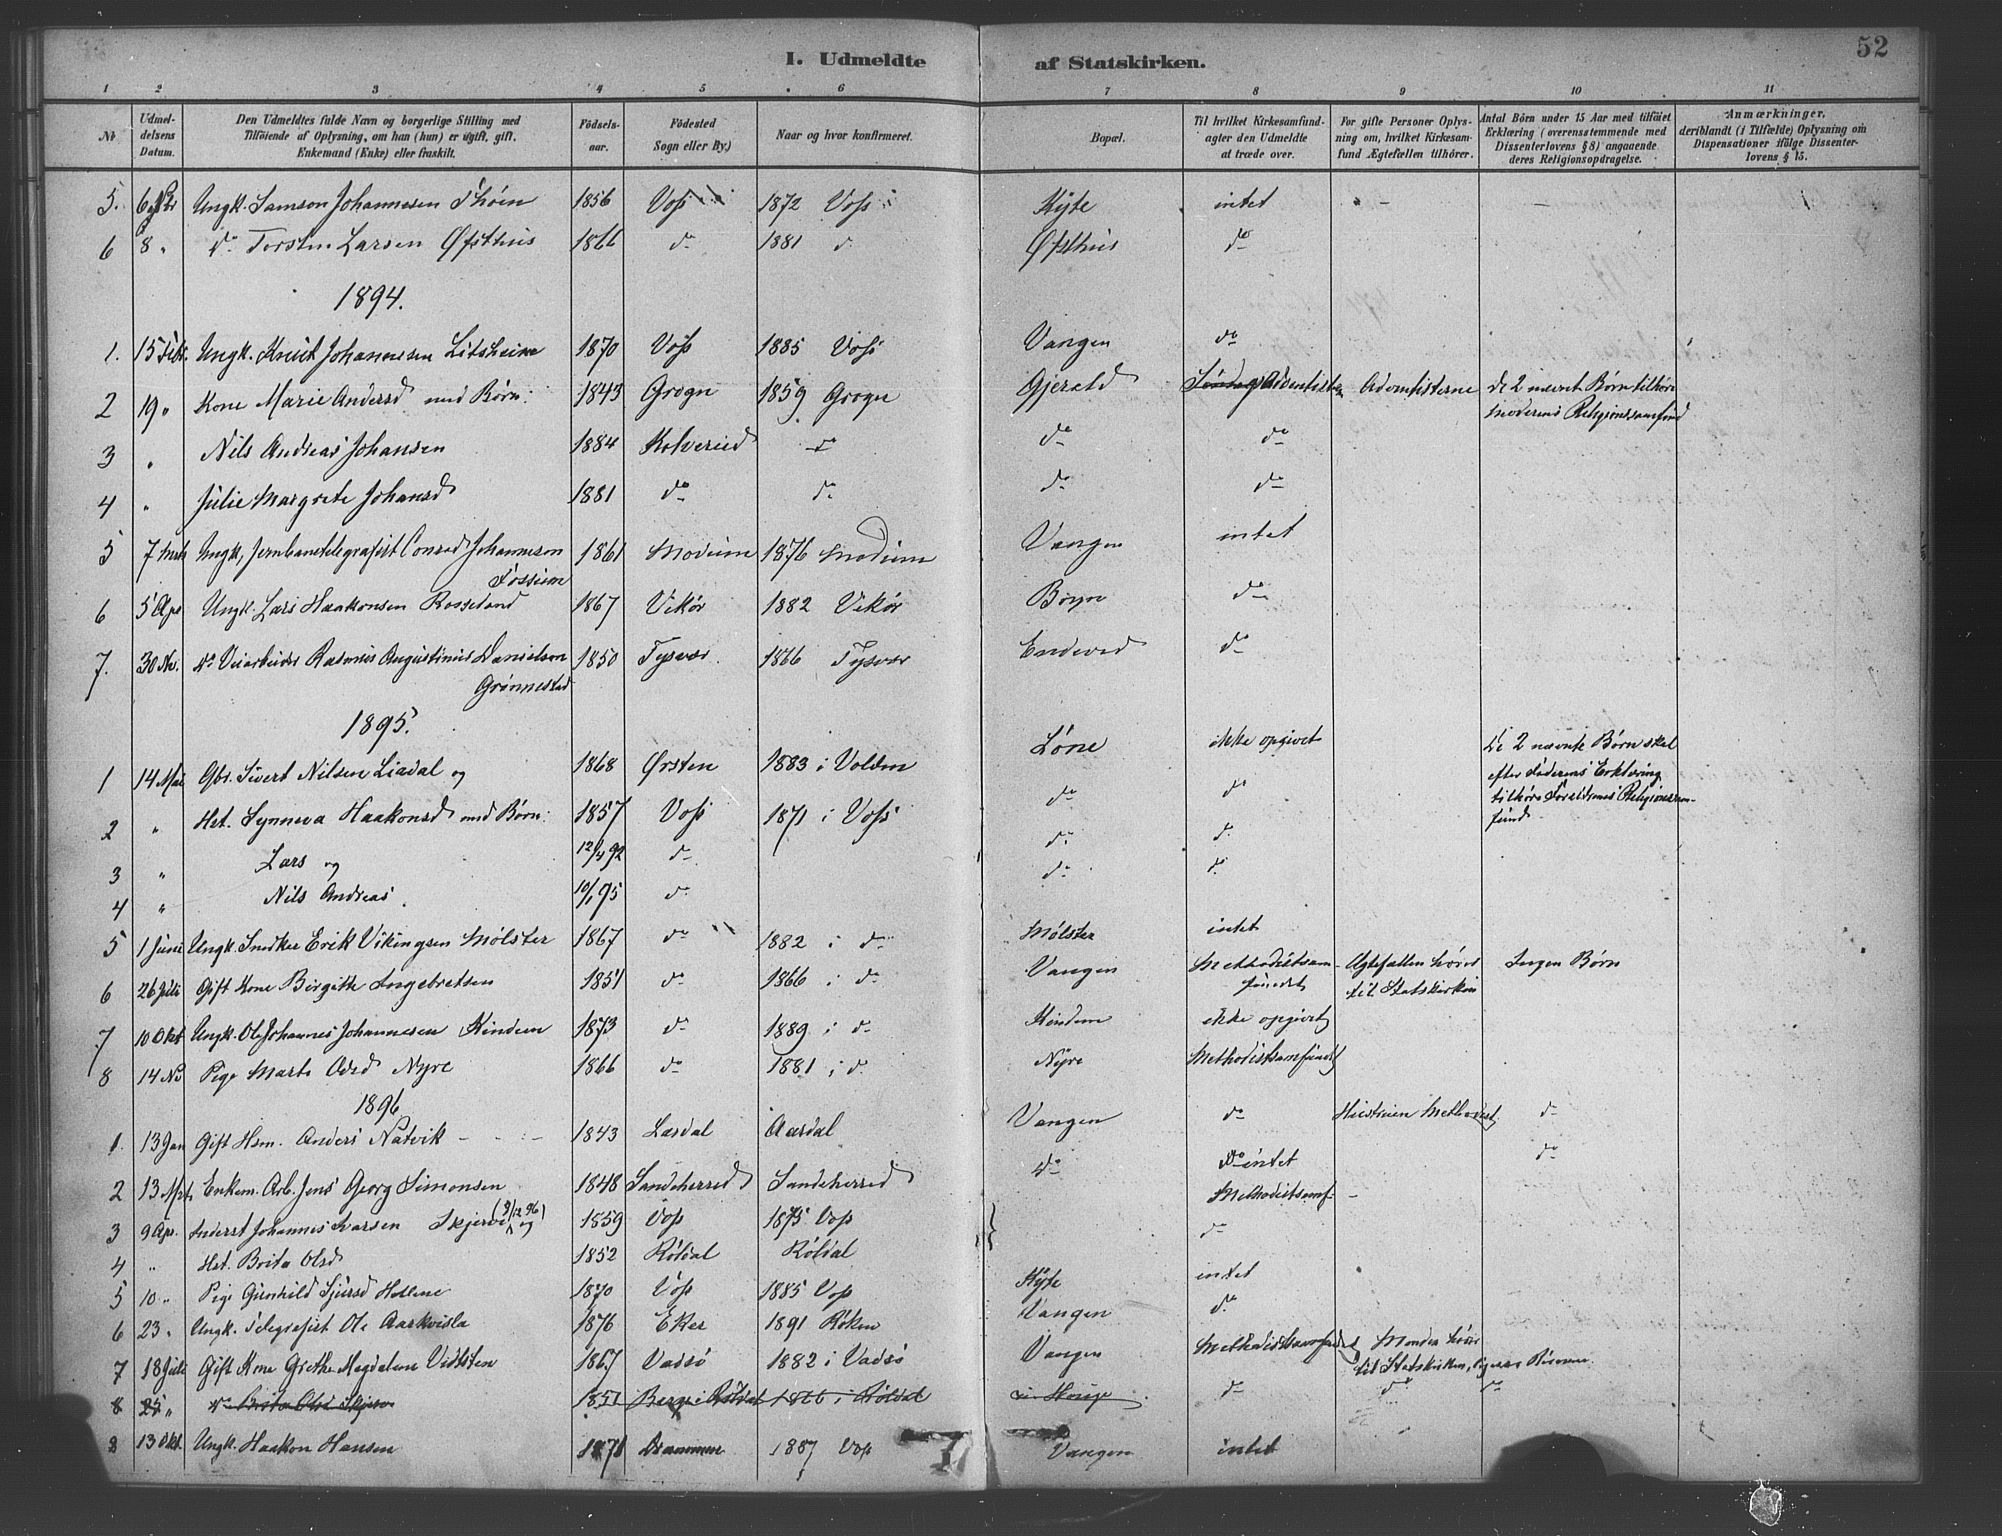 I. Udmeldte af Statskirken. 52
1 2 3 4 5 6 7 8 9 10 11
Nr. Udmeldelsens Datum. Den Udmeldtes fulde Navn og borgerlige Stilling med Tilføiende af Oplysning, om han (hun) er ugift, gift, Enkemand (Enke) eller fraskilt. Fødselsaar. Fødested Sogn eller By.) Naar og hvor konfirmeret. Bopæl. Til hvilket Kirkesamfund agter den Udmeldte at træde over. For gifte Personer Oplysning om, hvilket Kirkesamfund Ægtefællen tilhører. Antal Børn under 15 Aar med tilføiet Erklæring (overensstemmende med Dissenterlovens § 8) angaaende deres Religionsopdragelse. Anmærkninger, deriblandt (i Tilfælde) Oplysning om Dispensationer ifølge Dissenterlovens § 15.
5. 6 Ungk. Samson Johannesen 1856 Voss 1872 Voss Kyte intet - -
6 8 " do Torsten Larsen Øfsthus 1866 do 1881 d Øfsthus do
1894.
1. 15 Feb. Ungk. Knut Johannesen Litsheim 1870 Voss 1885 Voss Vangen do
2 19 " Kone Marie Andersd med Børn: 1843 Grogn 1859 Grogn Gjerald Adventisten Adventisterne de 2 nævnt Børn tilhøre
moderens Religionssamfund
3 " Nils Andreas Johansen 1884 Kolvereid do do do
4 " Julie Margrete Johansd 1881 do do do do
5 7 Mrts Ungk, Jernbanetelegrafist Conrad Johannesen 1861 Modum 1876 Modum Vangen intet
Fossum
6 5 Apr Ungk. Lars Haakonsen Rosseland 1867 Vikør 1882 Vikør do
7. 30 No. do Veiarbeider Rasmus Augustinus Danielsen 1850 Tysvær 1866 Tysvær Endeved do
Grønnestad
1895.
1 14 Mai Gbr. Sivert Nilsen Liadal og 1868 Ørsten 1883 i Volden Løne ikke opgivet De 2 nævnte Børn skal
efter Faderens Erklæring
tilhøre Forældrenes Religionssam-
fund
2 " Hst. Synneva Haakonsd med Børn: 1857 Voss 1871 i Voss do do
3 " Lars og 12/4 92 do do d
4 " Nils Andreas 10/1 95 do do d
5 1 Juni Ungk. Snedker Erik Vikingsen Mølster 1867 do 1882 i do Mølster intet
6 26 Juli Gift Kone Birgithe Ingebretsen 1851 do 1866 i do Vangen Methodistsam- Ægtefællen hører Ingen Børn
fundet til Statskirken
7 10 Okt Ungk. Ole Johannes Johannesen Kindem 1873 do 1889 i do Kindem ikke opgivet
8 14 No Pige Marta Odsd Nyre 1866 do 1881 i d Nyre Methodistsamfundet
1896
1. 13 Jan Gift Hsm. Anders Natvik 1843 Lærdal Aardal Vangen do Hustruen Methodist do
2 13 Mrts Enkem. Arb. Jens Georg Simonsen 1848 Sandeherred Sandeherred do intet do
3 9 Apr. Inderst Johannes Larsen Skjerve (9/12 96) og 1859 Voss 1875 Voss Methodistsamf. -
4 " Hst. Brita Olsd 1852 Røldal Røldal do
5 10 " Pige Gunhild Sjursd Helleve 1870 Voss 1885 Voss Kyte intet
6 23 " Ungk. Telegrafist Ole Aarkvisla 1876 Eker 1891 Røken Vangen do
7 18 Juli Gift Kone Grethe Magdalena Vidsten 1867 Vadsø 1882 i Vadsø Vangen Methodistsamfundet Manden hører
til Statskirken,
8 25 " do Brita Olsd Skjerve 1851 Røldal 1866 i Røldal do do do
8 13 Okt. Ungk. Haakon Hansen 1871 Drammen 1887 Voss Vangen intet